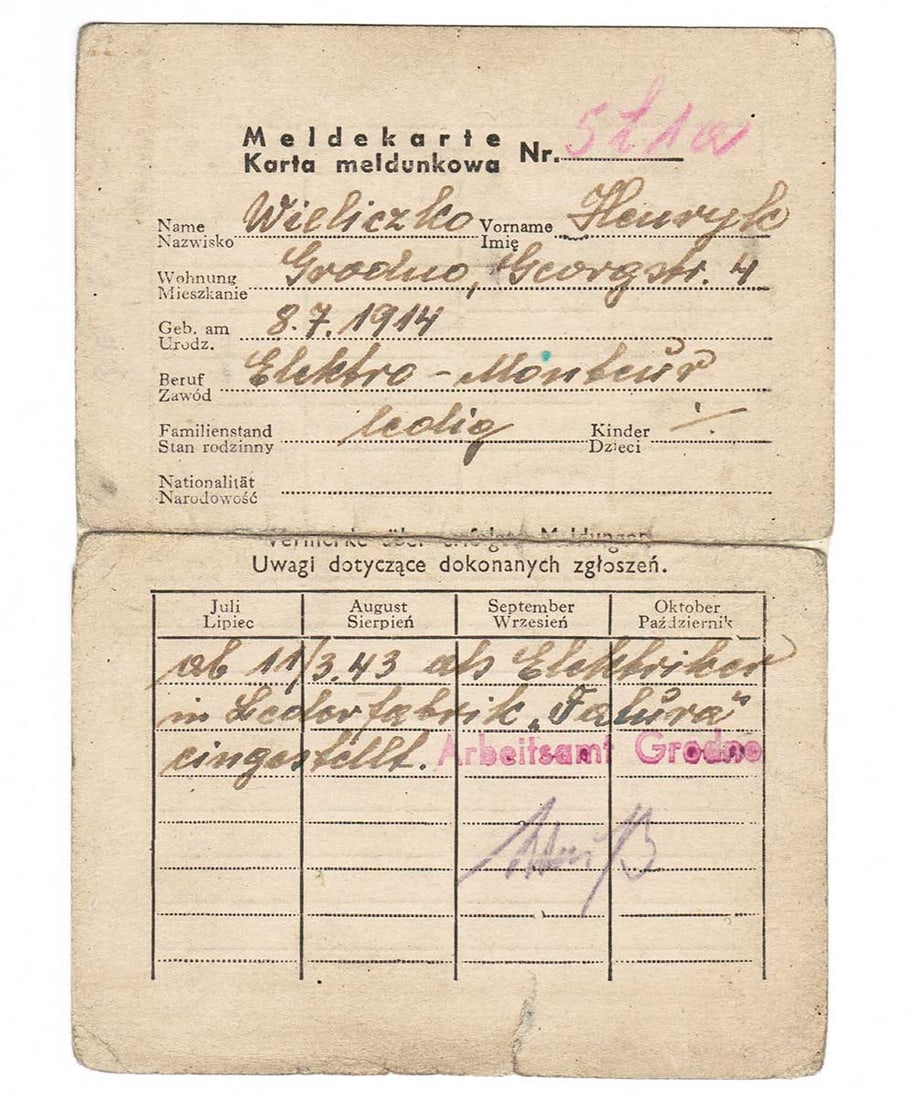 Meldekarte
Karta meldunkowa Nr.
Name Wieliczko Vorname Henryk
Nazwisko Imię
Wohnung Grodno, Georgstr. 4
Mieszkanie
Geb. am 8.7.1914
Urodz.
Beruf Elektro-Monteur
Zawód
Familienstand ledig Kinder ⁒
Stan rodzinny Dzieci
Nationalität
Narodowość
Vermerke über erfolgte Meldungen
Uwagi dotyczące dokonanych zgłoszeń.
Juli August September Oktober
Lipiec Sierpień Wrzesień Październik
ab 11/3.43 als Elektriker
in Lederfabrik
eingestellt. Arbeitsamt Grodno